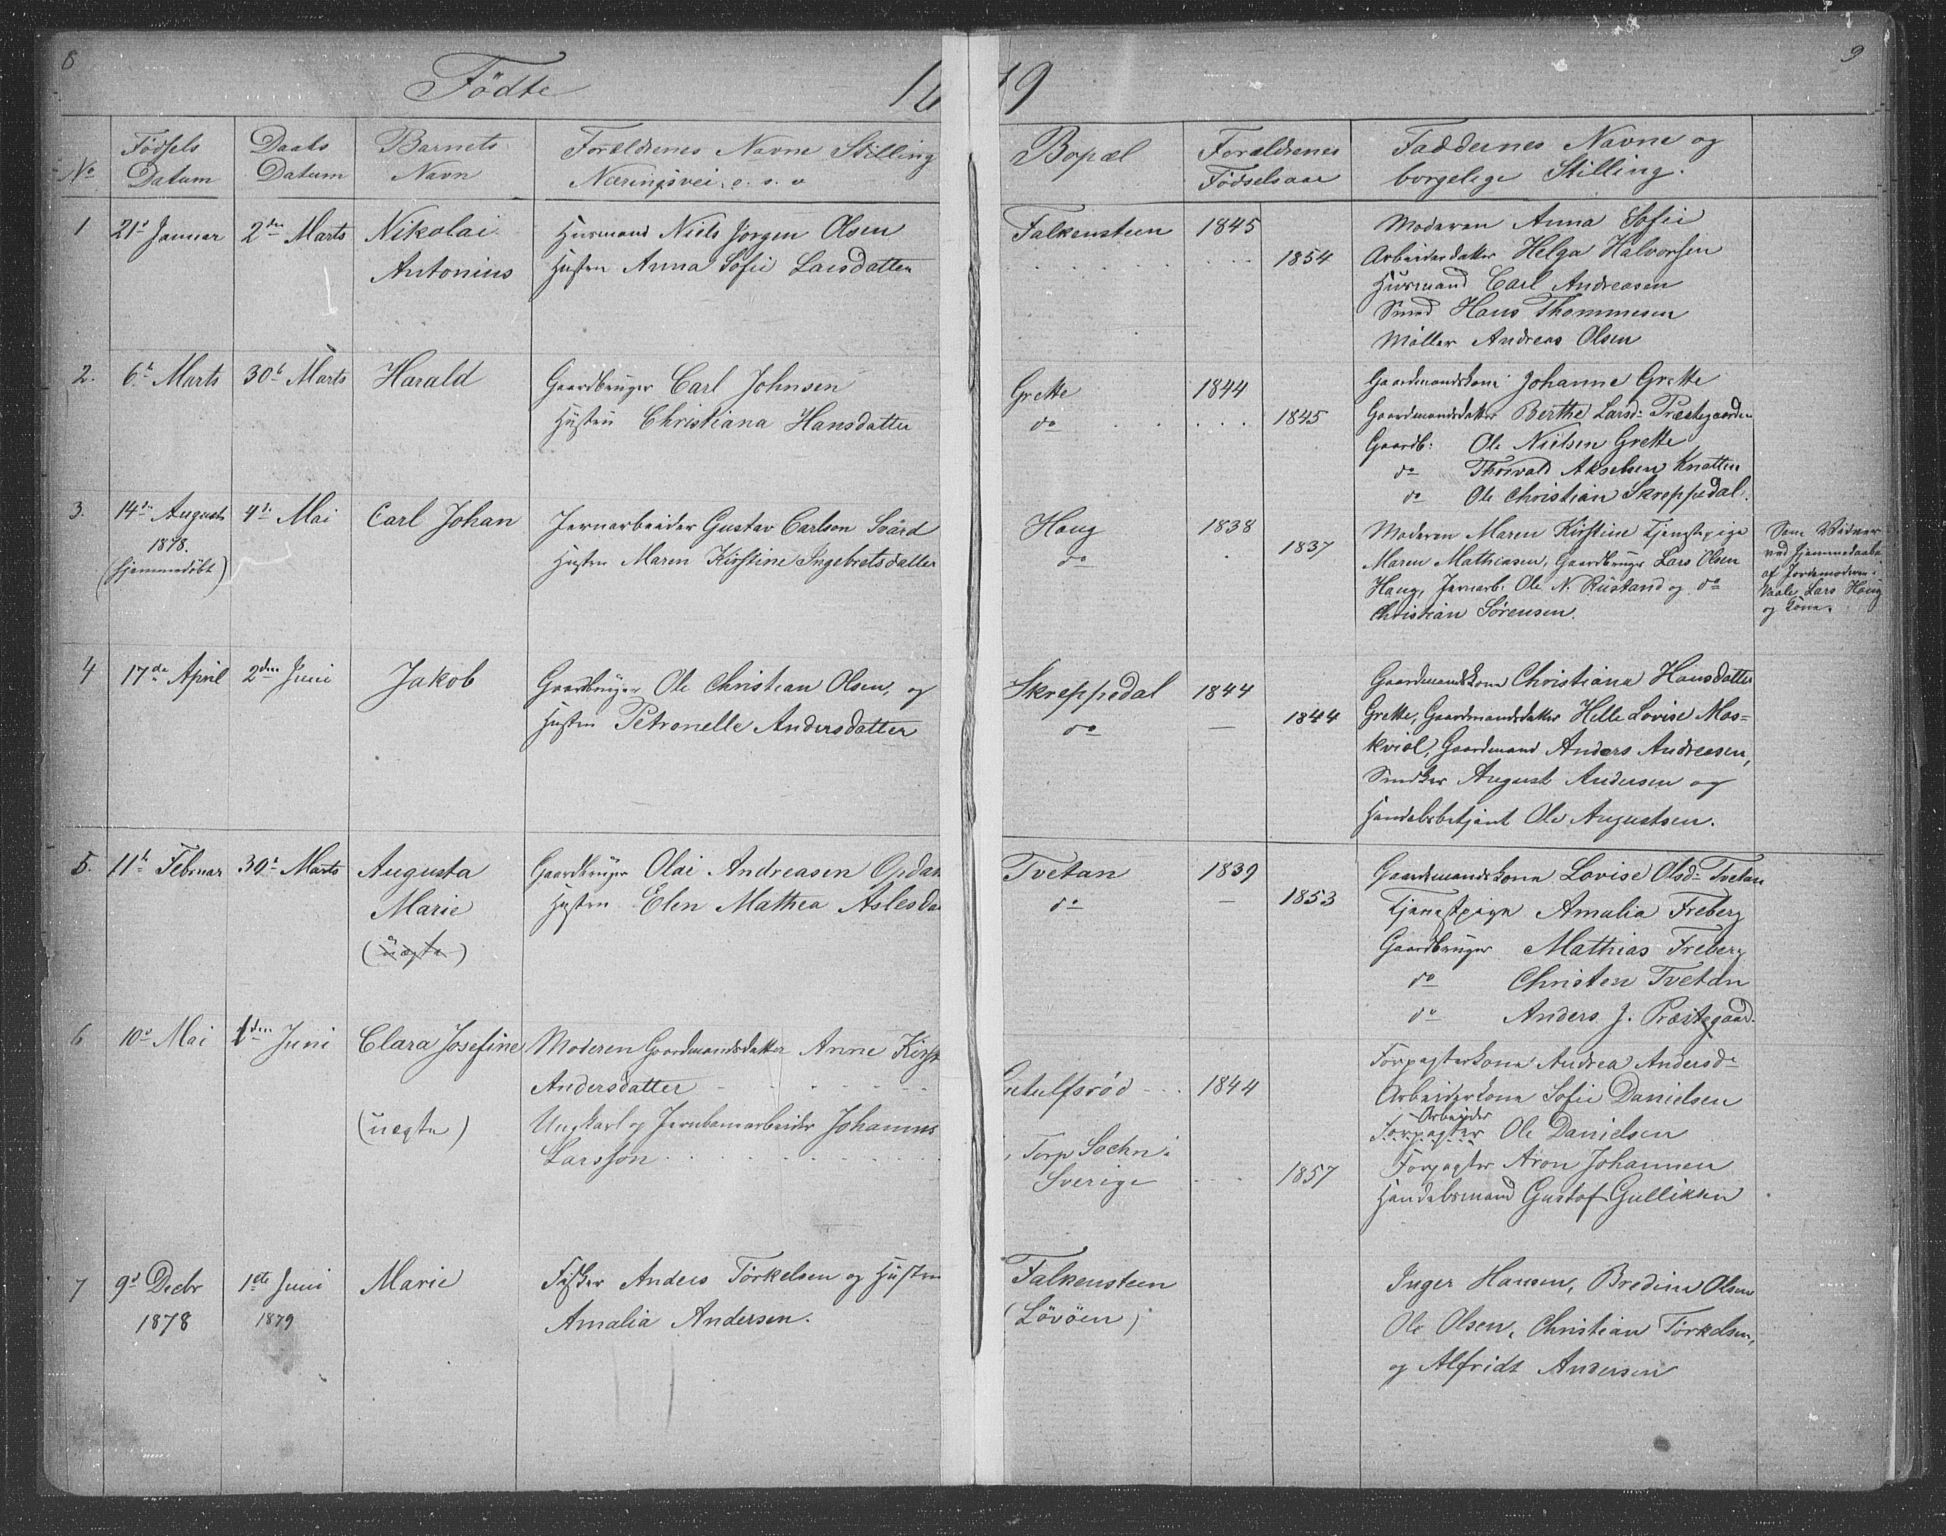 8
Födte
1879
9
No
Födsels Datum
Daabs Datum
Barnets Navn
Forældrenes Navne Stilling Næringsvei o. s. v
Bopæl
Forældrenes Födselsaar
Faddernes Navne og borgelige Stilling.
1 21d Januar 2den Marts Nikolai Antonius
Husmand Niels Jörgen Olsen
Hustru Anna Sofie Larsdatter
Falkensteen 1845
1854
Moderen Anna Sofie
Arbeiderdatter Helga Halvorsen
Husmand Carl Andreasen
Smed Hans Thommesen
Möller Andreas Olsen
2. 6t Marts 30t Marts Harald
Gaardbruger Carl Johnsen
Hustru Christiana Hansdatter
Grette 1844
do 1845
Gaardmandskone Johanne Grette
Gaardmandsdatter Berthe Larsd: Præstegaarden
Gaardb: Ole Nielsen Grette
do Thorvald Akselsen Knatten
do Ole Christian Skreppedal.
3. 14de August 1878. (hjemmedöbt) 4de Mai Carl Johan
Jernarbeider Gustav Carlson Svärd
Hustru Maren Kirstine Ingebretsdatter
Haug 1838
do 1837
Moderen Maren Kirstine Tjenestpige
Maren Mathiasen, Gaardbruger Lars Olsen
Haug, Jernarb: Ole N. Rustand og do
Christian Sörensen.
Som Vidner
ved hjemmedaaben
af Jordemoderen i
Vaale, Lars Haug
og Kone.
4 17de April 2den Juni Jakob
Gaardbruger Ole Christian Olsen, og
Hustru Petronelle Andersdatter
Skreppedal 1844
do 1844
Gaardmandskone Christiana Hansdatter
Grette, Gaardmandsdatter Helle Lovise Mos-
kviel, Gaardmand Anders Andreasen,
Snedker August Andersen og
Handelsbetjent Ole Augustsen.
5. 11t Februar 30t Marts Augusta Marie (uægte)
Gaardbruger Olai Andreasen Opdal
Hustru Elen Mathea Aslesda
Tvetan 1839
do 1853
Gaardmandskone Lovise Olsd: Tvetan
Tjenestpige Amalia Freberg
Gaardbruger Mathias Freberg
do Christen Tvetan
do Anders J. Præstegaard.
6 10d Mai 1den Juni Clara Josefine (uægte)
Moderen Gaardmandsdatter Anne Kirst
Andersdatter
Ungkarl og Jernbanarbeider Johannes
Larsson
Gutulfsröd 1844
i Torp Sochn i
Sverige 1857
Forpagterkone Andrea Andersd:
Arbeiderkone Sofie Danielsen
Arbeider
Forpagter Ole Danielsen
Forpagter Aron Johannesen
Handelsmand Gustaf Gulliksen
7 9d Decbr 1878 1ste Juni 1879 Marie
Fisker Anders Törkelsen og Hustru
Amalia Andersen.
Falkensteen
(Lövöen)
Inger Hansen, Bredine Olsen
Ole Olsen, Christian Törkelsen,
og Alfridt Andersen